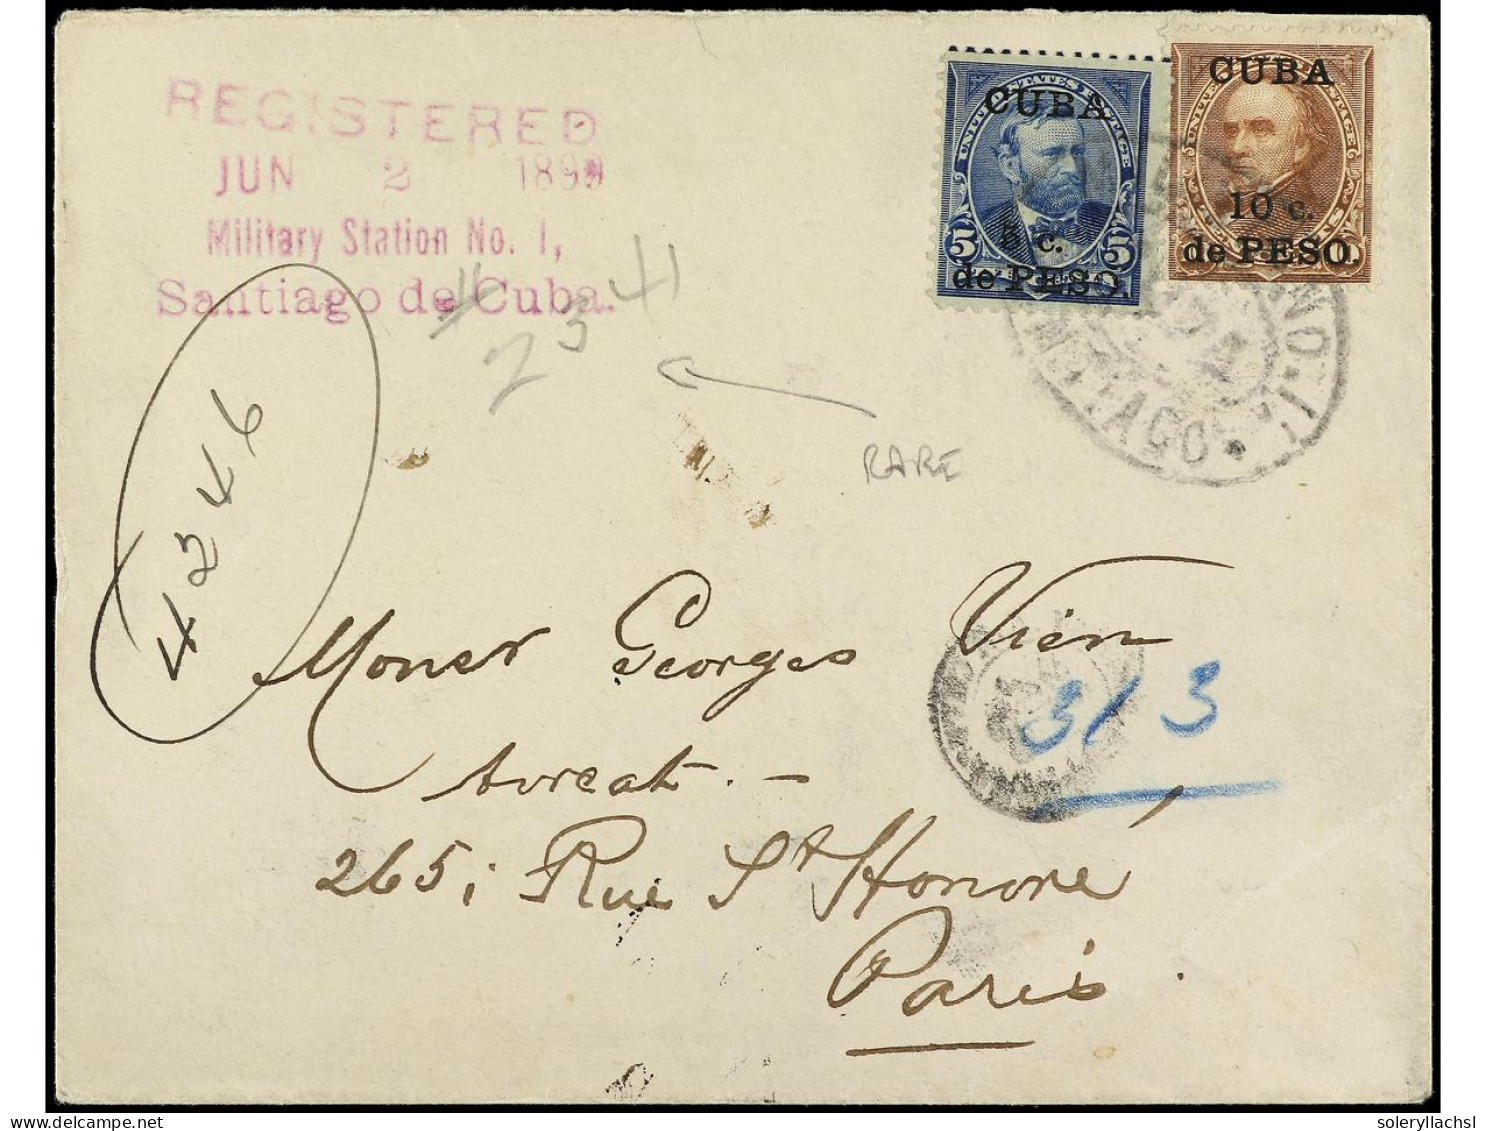 REGISTERED
JUN 2 1899
Military Station No. 1,
Santiago de Cuba.
CUBA
5 c.
de PESO.
5 5
CUBA
10 c.
de PESO.
41
23
RARE
4246
Monsr Georges Vien
313
Avocat. -
265; Rue St Honoré,
Paris.
soleryllachsl